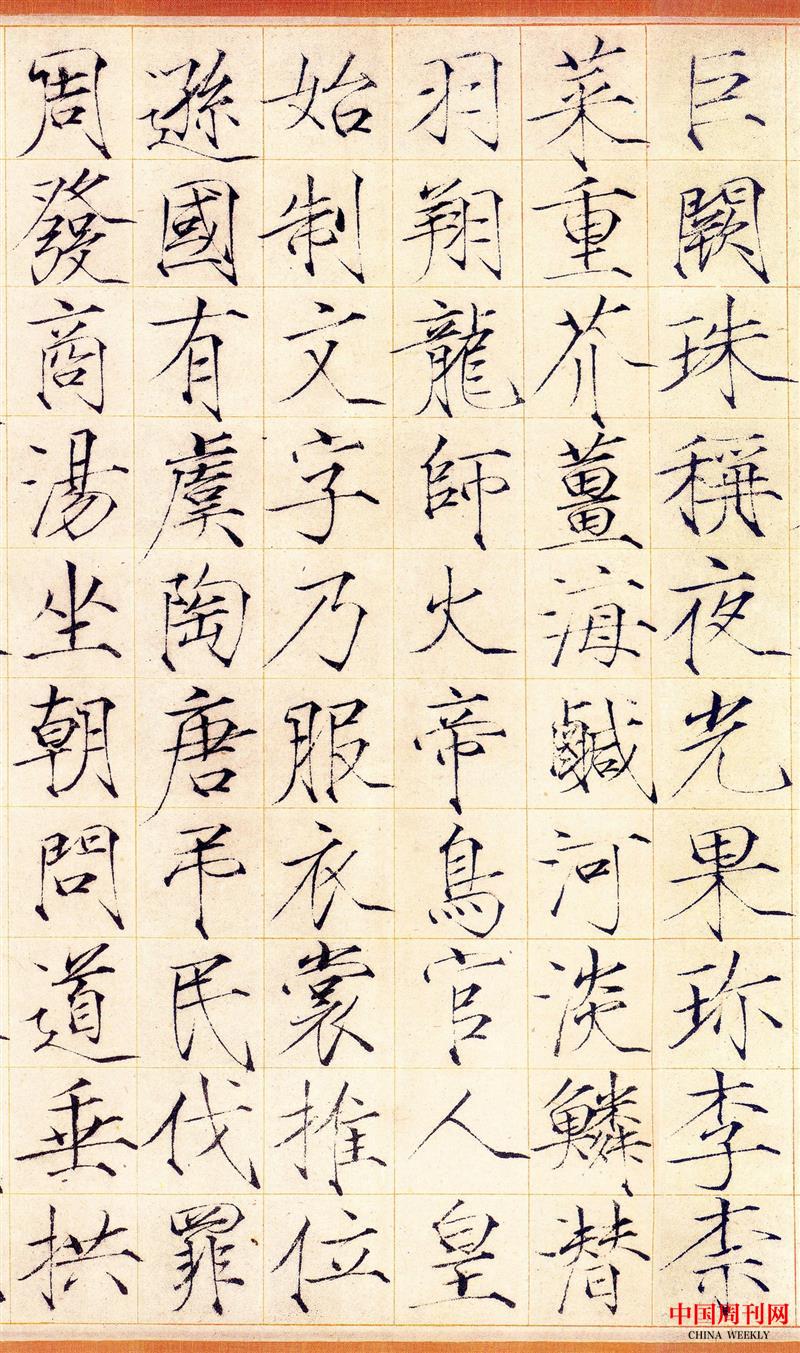 巨闕珠稱夜光果珎李柰
菜重芥薑海鹹河淡鱗潜
羽翔龍師火帝鳥官人皇
始制文字乃服衣裳推位
遜國有虞陶唐吊民伐罪
周發商湯坐朝問道垂拱
中国周刊网
CHINA WEEKLY